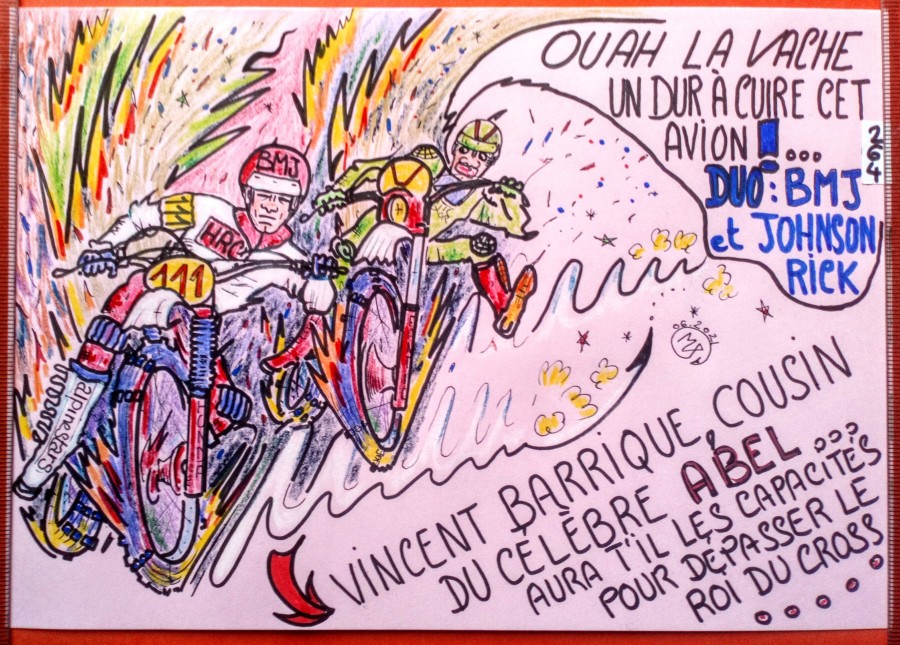 OUAH LA VACHE
UN DUR À CUIRE CET
AVION !...
DUO : BMJ
et JOHNSON
RICK
264
BMJ
HRC
111
H
alpinestars
HONDA
06.202
MX
VINCENT BARRIQUE, COUSIN
DU CÉLÈBRE ABEL...
AURA T'IL LES CAPACITÉS
POUR DÉPASSER LE
ROI DU CROSS
.....